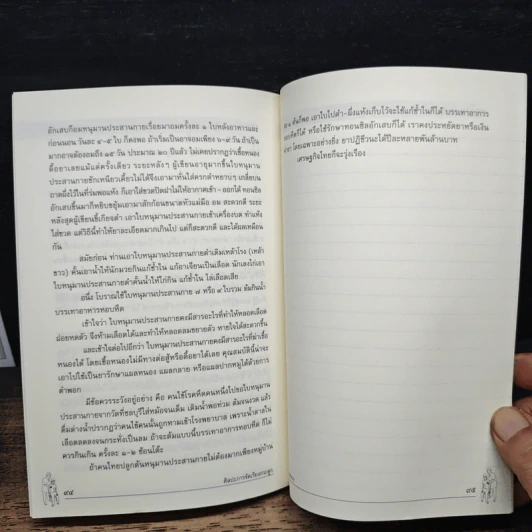 อักเสบก็อมหนุมานประสานกายเรื่อยมาอมครั้งละ ๑ ใบหลังอาหารและ
ก่อนนอน วันละ ๔-๕ ใบ ก็คงพอ ถ้าเริ่มเป็นอาจอมเพียง ๖-๗ วัน ถ้าเป็น
มากอาจต้องอมถึง ๑๕ วัน ประมาณ ๒๐ ปีแล้ว ไม่เคยปรากฏว่าเชื้อหนอง
ดื้อยาเลยแม้แต่ครั้งเดียว ระยะหลังๆ ผู้เขียนอายุมากขึ้นใบหนุมาน
ประสานกายชักเหนียวเคี้ยวไม่ได้จึงเอามาหั่นใส่ครกตำหยาบๆ เกลี่ยบน
ถาดผึ่งไว้ในที่ร่มพอแห้ง ก็เอาใส่ขวดปิดฝาไม่ให้อากาศเข้า-ออกได้ ทอนซิล
อักเสบขึ้นมาก็หยิบขยุ้มเอามาสักก้อนขนาดหัวแม่มือ อม สะดวกดี ระยะ
หลังสุดผู้เขียนขี้เกียจตำ เอาใบหนุมานประสานกายเข้าเครื่องบด ทำแห้ง
ใส่ขวด แต่วิธีนี้ทำให้ยาละเอียดมากเกินไป แต่ก็สะดวกดี และได้ผลเหมือน
กัน
สมัยก่อน ท่านเอาใบหนุมานประสานกายตำเติมเหล้าโรง (เหล้า
ขาว) คั้นเอาน้ำให้นักมวยกินแก้ช้ำใน แก้อาเจียนเป็นเลือด นักเลงไก่เอา
ใบหนุมานประสานกายตำคั้นน้ำให้ไก่กิน แก้ช้ำใน ไล่เลือดเสีย
อนึ่ง โบราณใช้ใบหนุมานประสานกาย ๗ หรือ ๙ ใบรวม ต้มกินน้ำ
บรรเทาอาการหอบหืด
เข้าใจว่า ใบหนุมานประสานกายคงมีสารอะไรที่ทำให้หลอดเลือด
ฝอยหดตัว จึงห้ามเลือดได้และทำให้หลอดลมขยายตัว หายใจได้สะดวกขึ้น
และเข้าใจต่อไปอีกว่า ใบหนุมานประสานกายคงมีสารอะไรที่ฆ่าเชื้อ
หนองได้ โดยเชื้อหนองไม่มีทางต่อสู้หรือดื้อยาได้เลย คุณสมบัตินี้น่าจะ
เอาไปใช้เป็นยารักษาแผลหนอง แผลกลาย หรือแผลปากหมูได้ ด้วยการ
ตำพอก
มีข้อควรระวังอยู่อย่าง คือ คนใช้โรคหืดคนหนึ่งไปขอใบหนุมาน
ประสานกายจากวัดที่ชลบุรีใส่หม้อจนเต็ม เติมน้ำพอท่วม ต้มจนงวด แล้ว
ดื่มต่างน้ำปรากฏว่าคนใช้คนนั้นถูกหามเข้าโรงพยาบาล เพราะน้ำตาลใน
เลือดลดลงจนกระทั่งเป็นลม ถ้าจะต้มแบบนี้บรรเทาอาการหอบหืด ก็ไม่
ควรกินเกิน ครั้งละ ๑-๒ ช้อนโต๊ะ
ถ้าคนไทยปลูกต้นหนุมานประสานกายไม่ต้องมากเพียงหมู่บ้าน
๙๔
ศิลปะการจัดเรียง
ละ ๑ ต้นก็พอ เอาใบไปตำ-ผึ่งแห้งเก็บไว้จะใช้แก้ช้ำในก็ได้ บรรเทาอาการ
หอบหืดก็ได้ หรือใช้รักษาทอนซิลอักเสบก็ได้ เราคงประหยัดยาหรือเงิน
ค่ายา โดยเฉพาะอย่างยิ่ง ยาปฏิชีวนะได้ปีละหลายพันล้านบาท
เศรษฐกิจไทยก็จะรุ่งเรือง
๙๕